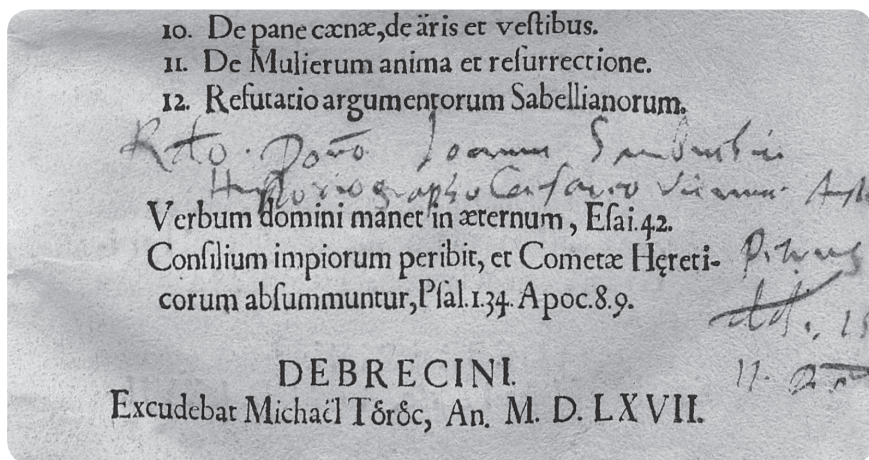 10. De pane cænæ, de äris et veſtibus.
11. De Mulierum anima et reſurrectione.
12. Refutatio argumentorum Sabellianorum.
Rdo. Dōno Ioanni Sambucio
Hystoriographo Cesareo Viennæ
Verbum domini manet in æternum, Eſai. 42.
Conſilium impiorum peribit, et Cometæ Hęreti-
corum abſummuntur, Pſal. 134. Apoc. 8. 9.
Petrus
dd.
11.
DEBRECINI.
Excudebat Michaël Tŏrŏc, An. M. D. LXVII.